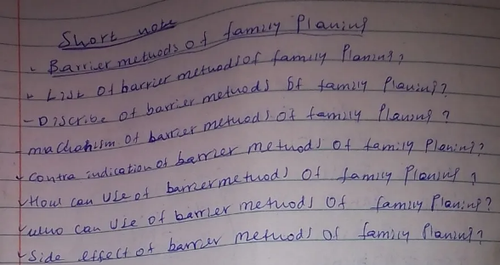 Short note of family Planing
- Barrier methods of family Planing?
- List of barrier methods of family Planing?
- Discribe of barrier methods of family Planing?
- machahism of barrier methods of family Planing?
- Contra indication of barrier methods of family Planing?
- How can use of barrier methods of family Planing?
- who can use of barrier methods of family Planing?
- Side effect of barrier methods of family Planing?